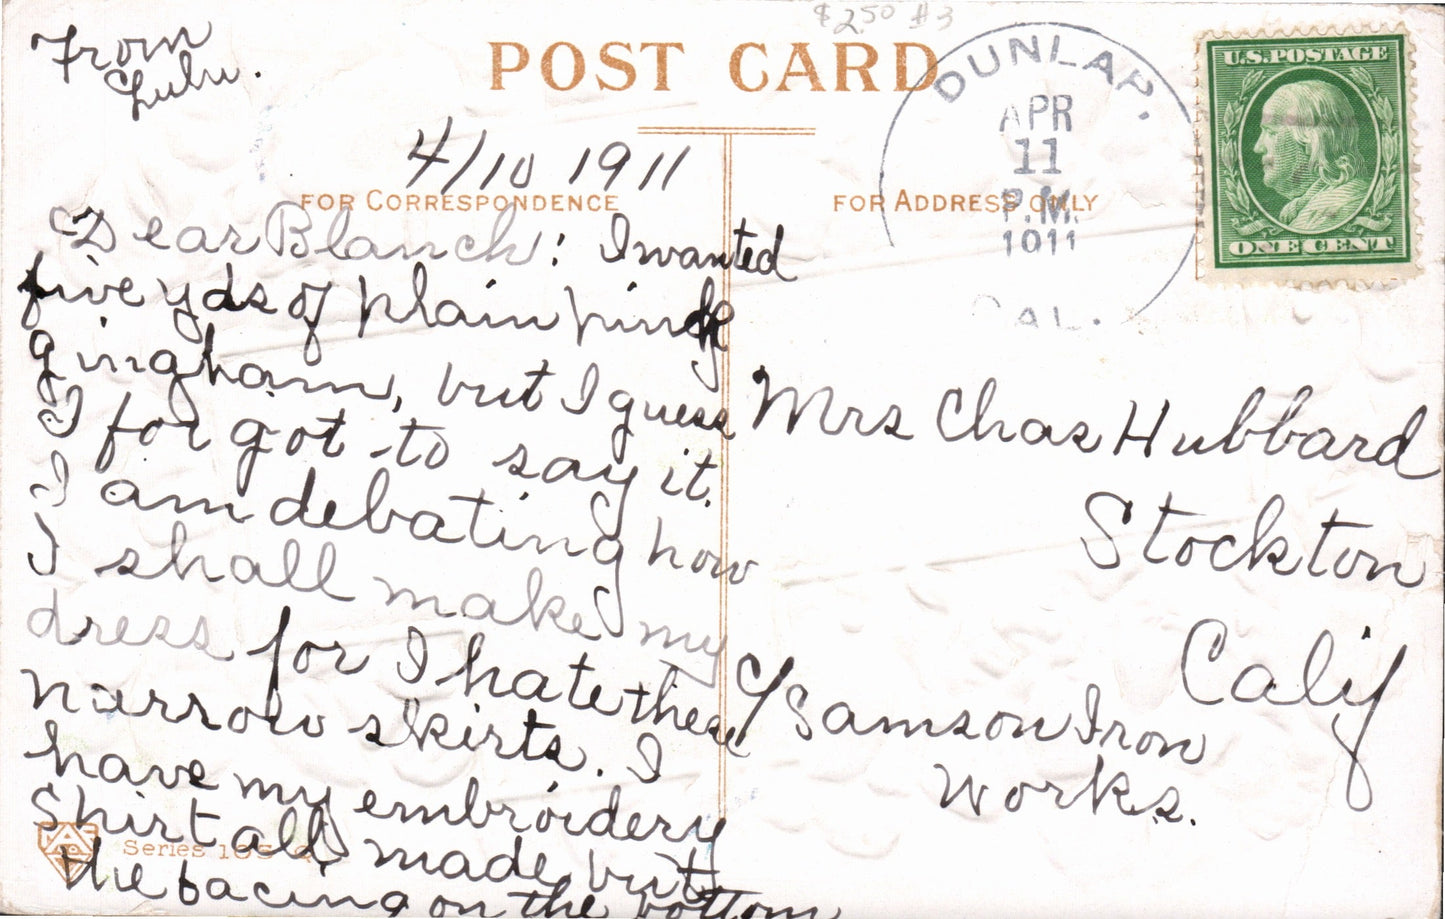 $2.50 #3
From
Lulu.
POST CARD
DUNLAP.
APR
11
P.M.
1911
CAL.
U.S. POSTAGE
ONE CENT
4/10 1911
FOR CORRESPONDENCE
FOR ADDRESS ONLY
Dear Blanch: I wanted
five yds of plain pink
gingham, but I guess
I forgot to say it.
I am debating how
I shall make my
dress for I hate these
narrow skirts. I
have my embroidery
shirt all made but
the facing on the bottom
Mrs Chas Hubbard
Stockton
Calif
c/ Samson Iron
Works.
Series